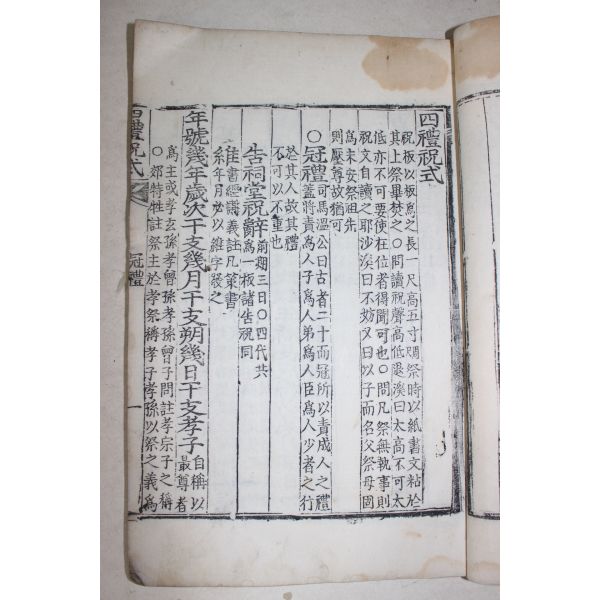 四禮祝式
祝板以板爲之長一尺高五寸周祭時以紙書文粘於
其上祭畢焚之○問讀祝聲高低退溪曰太高不可太
低亦不可要使在位者得聞可也○問凡祭無執事則
祝文自讀之耶沙溪曰不妨又曰以子而名父祭母固
爲未安祭祖先
則壓尊故猶可
○冠禮
司馬溫公曰古者二十而冠所以責成人之禮
蓋將責爲人子爲人弟爲人臣爲人少者之行
於其人故其禮
不可以不重也
告祠堂祝辭
前期三日○四代共
爲一板諸告祝同
維書經義註凡策書
年月必以維字發之
年號幾年歲次干支幾月干支朔幾日干支孝子
自稱以
最尊者
爲主或孝玄孫孝曾孫孝孫曾子問註孝宗子之稱
○郊特牲註祭主於孝祭稱孝子孝孫以祭之義爲
四禮祝式
冠禮
一